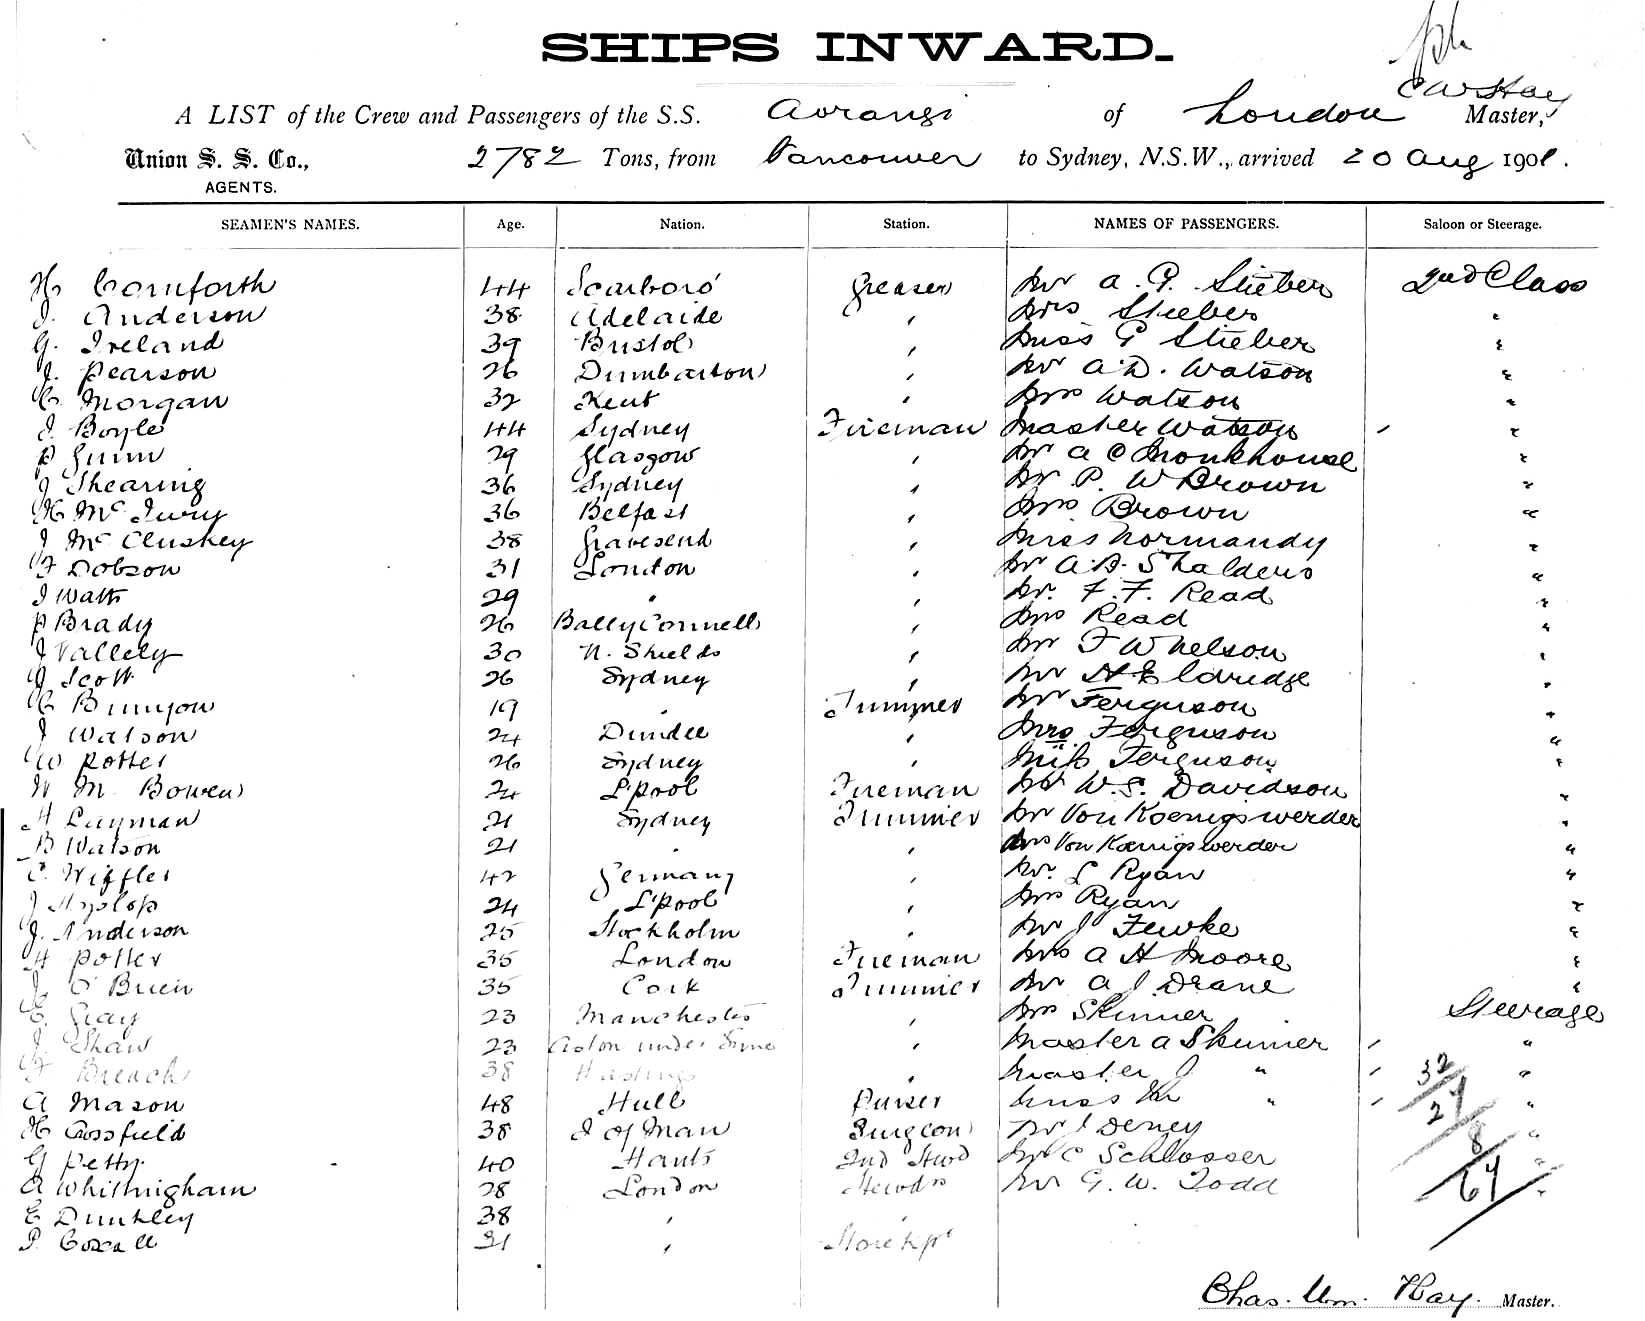 SHIPS INWARD.
C W Hay
A LIST of the Crew and Passengers of the S.S. Aorangi of London Master,
Union S. S. Co., 2782 Tons, from Vancouver to Sydney, N.S.W., arrived 20 Aug 1901.
AGENTS.
SEAMEN'S NAMES. Age. Nation. Station. NAMES OF PASSENGERS. Saloon or Steerage.
H Cornforth 44 Scarboro' Greaser Mr A. G. Stieber 2nd Class
J. Anderson 38 Adelaide " Mrs Stieber "
G. Ireland 39 Bristol " Miss G Stieber "
J. Pearson 26 Dumbarton " Mr A. D. Watson "
C. Morgan 32 Kent " Mrs Watson "
J. Boyle 44 Sydney Fireman Master Watson "
P Gunn 29 Glasgow " Mr A C Monkhouse "
J Shearing 36 Sydney " Mr P. W Brown "
H McIvery 36 Belfast " Mrs Brown "
J McCluskey 38 Gravesend " Miss Normandy "
F Dobson 31 London " Mr A. B. Shalders "
J Watt 29 " " Mr. F. F. Read "
P Brady 26 Ballyconnell " Mrs Read "
J Vallely 30 N. Shields " Mr F W Nelson "
J Scott 26 Sydney " Mr H Eldridge "
C Bunyon 19 " Trimmer Mr Ferguson "
J Watson 24 Dundee " Mrs Ferguson "
W Potter 26 Sydney " Miss Ferguson "
W M. Bowen 24 L'pool Fireman Mr W. S. Davidson "
H Layman 21 Sydney Trimmer Mr Von Koenigswerder "
B Watson 21 " " Mrs Von Koenigswerder "
C. Wiffler 42 Germany " Mr. L Ryan "
J Hyslop 24 L'pool " Mrs Ryan "
J. Anderson 25 Stockholm " Mr J Fewke "
H Potter 35 London Fireman Mrs A H Moore "
J O'Brien 35 Cork Trimmer Mr A J Deane "
E. Gray 23 Manchester " Mrs Skinner Steerage
J Shaw 23 Ashton under Lyne " Master A Skinner "
F Breach 38 Hastings " Master J " "
A Mason 48 Hull Purser Miss " "
H Crossfield 38 I of Man Surgeon Mr J Deney "
G Petty 40 Hants 2nd Stwd Mr C Schlosser "
A Whittingham 28 London Stewds Mr G. W. Todd "
E Dunkley 38 " "
P. Coxall 31 " Storekpr
32
27
8
67
Chas. Wm. Hay. Master.